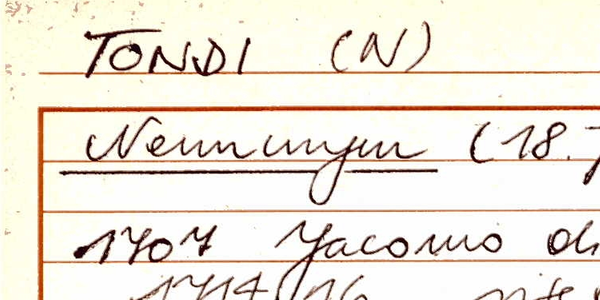 TONDI (N)
Nenningen (18.
1707 Jacomo di
1714/16